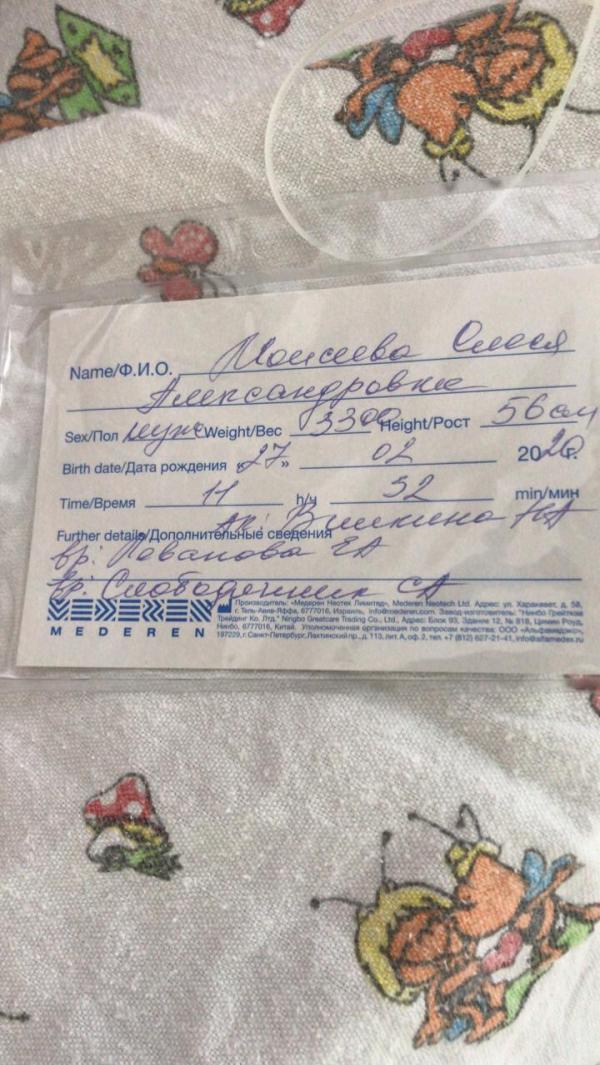 Name/Ф.И.О. Моисеева Олеся
Александровна
Sex/Пол муж Weight/Вес 3300 Height/Рост 56 см
Birth date/Дата рождения «27» 02 2020г.
Time/Время 11 h/ч 52 min/мин
Further details/Дополнительные сведения Ак: Вишкина НА
вр: Лованова ЕА
вр: Слободечник СА
Производитель: «Медерен Неотех Лимитед», Mederen Neotech Ltd. Адрес: ул. Харакевет, д. 58,
г. Тель-Авив-Яффа, 6777016, Израиль, info@mederen.com. Завод-изготовитель: "Нингбо Грейткэа
Трейдинг Ко. Лтд." Ningbo Greatcare Trading Co., Ltd., Адрес: Блок 93, Здание 12, № 818, Цимин Роуд,
Нинбо, 6777016, Китай. Уполномоченная организация по вопросам качества: ООО «Альфамедэкс»,
197229, г. Санкт-Петербург, Лахтинский пр., д. 113, лит. А, оф. 2, тел. +7 (812) 627-21-41, info@alfamedex.ru
MEDEREN